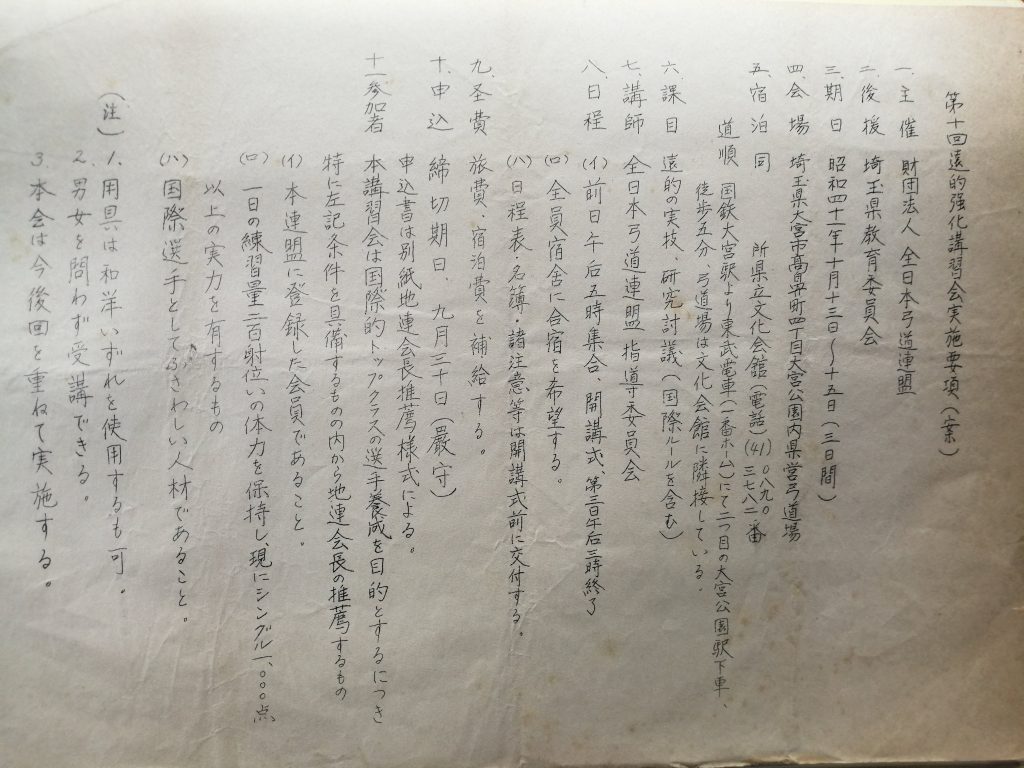 第十回遠的強化講習会実施要項(案)
一、主催 財団法人 全日本弓道連盟
二、後援 埼玉県教育委員会
三、期日 昭和四十一年十月十三日〜十五日(三日間)
四、会場 埼玉県大宮市高鼻町四丁目大宮公園内県営弓道場
五、宿泊 同 所県立文化会館(電話)(41)〇八九〇 三七八二番
道順 国鉄大宮駅より東武電車(一番ホーム)にて二つ目の大宮公園駅下車、
徒歩五分 弓道場は文化会館に隣接している。
六、課目 遠的の実技、研究討議(国際ルールを含む)
七、講師 全日本弓道連盟 指導委員会
八、日程 (イ)前日午后五時集合、開講式、第三日午后三時終了
(ロ)全員宿舎に合宿を希望する。
(ハ)日程表・名簿・諸注意等は開講式前に交付する。
九、 費 旅費、宿泊費を補給する。
十、申込 締切期日、九月三十日(厳守)
申込書は別紙地連会長推薦様式による。
十一、参加者 本講習会は国際的トップクラスの選手養成を目的とするにつき
特に左記条件を具備するものの内から地連会長の推薦するもの
(イ)本連盟に登録した会員であること。
(ロ)一日の練習量二百射位いの体力を保持し、現にシングル一、〇〇〇点
以上の実力を有するもの
(ハ)国際選手としてふさわしい人材であること。
(注)1. 用具は和洋いずれを使用するも可。
2. 男女を問わず受講できる。
3. 本会は今後回を重ねて実施する。